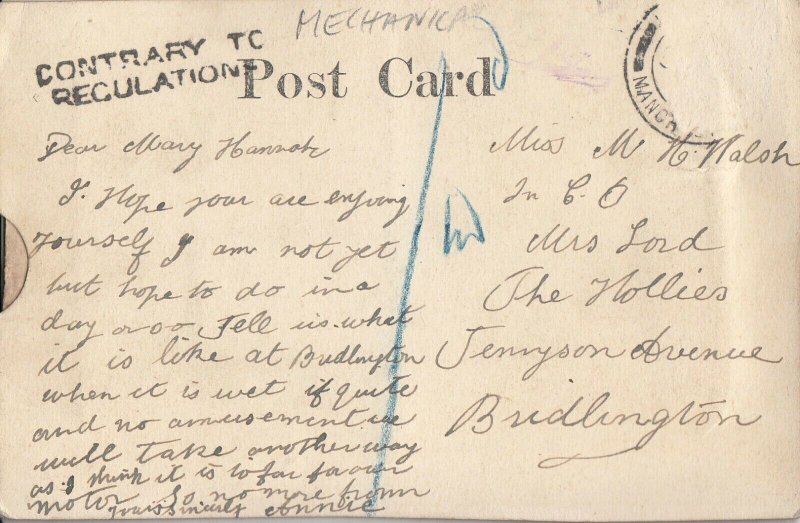 MECHANICAL
CONTRARY TO
REGULATIONS
Post Card
MANCR
Dear Mary Hannah
I Hope your are enjoying
yourself I am not yet
but hope to do in a
day or so Tell us what
it is like at Bridlington
when it is wet if quite
and no amusement we
will take another way
as I think it is to far for our
motor So no more from
Yours Sincerely Annie
Miss M H Walsh
In C. O
Mrs Lord
The Hollies
Tennyson Avenue
Bridlington